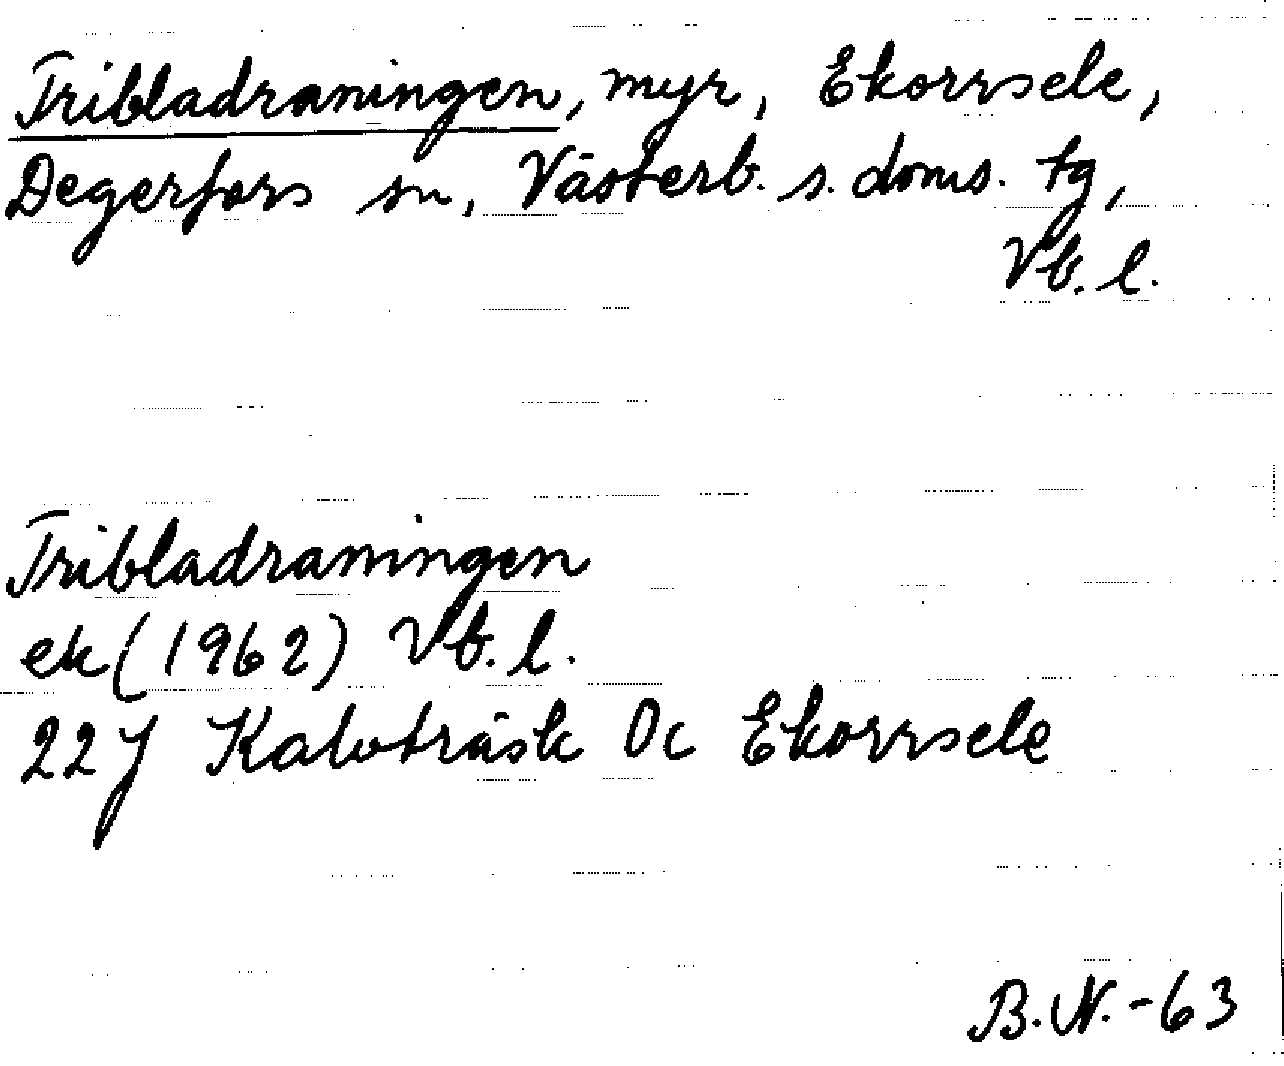 Tribladraningen, myr, Ekorrsele,
Degerfors sn, Västerb. s. doms. tg,
Vb. l.
Tribladraningen
ek (1962) Vb. l.
22 J Kalvträsk 0c Ekorrsele
B.N.-63